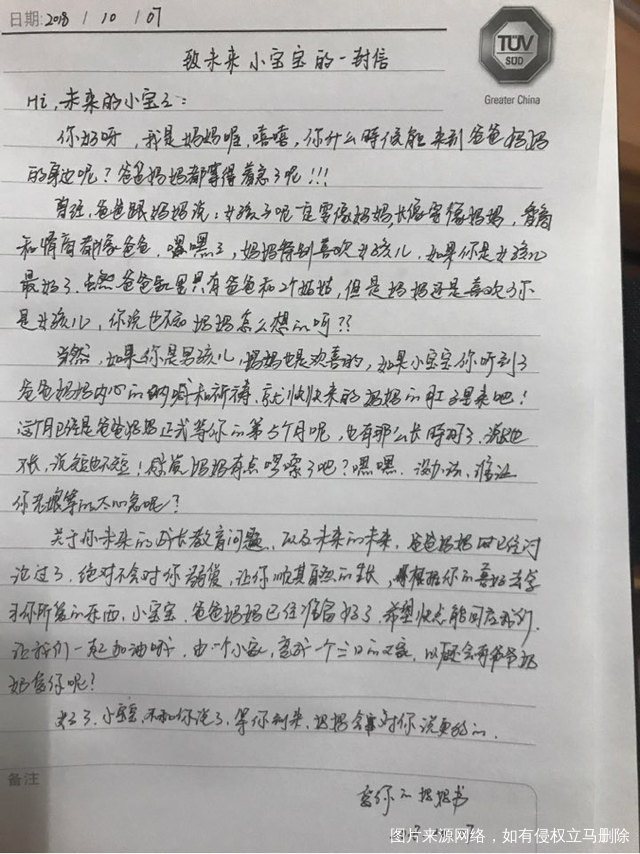 日期: 2018 / 10 / 07
TÜV
SÜD
Greater China
致未来小宝宝的一封信
Hi,未来的小宝宝:
你好呀,我是妈妈喔,嘻嘻,你什么时候能来到爸爸妈妈
的身边呢?爸爸妈妈都等得着急了呢!!!
曾经,爸爸跟妈妈说:女孩子呢一定要像妈妈,长像要像妈妈,智商
和情商都像爸爸,嘿嘿了,妈妈特别喜欢女孩儿,如果你是女孩儿
最好了,虽然爸爸家里只有爸爸和2个姑姑,但是妈妈还是喜欢了你
是女孩儿,你说也不知妈妈怎么想的呵??
当然,如果你是男孩儿,妈妈也是欢喜的,如果小宝宝你听到了
爸爸妈妈内心的呐喊和祈祷,就快快来的妈妈的肚子里来吧!
这个月已经是爸爸妈妈正式等你的第5个月呢,也有那么长时间了,说长也
不长,说短也不短!感觉妈妈有点啰嗦了吧?嘿嘿,没办法,谁让
你老壤等的太心急呢?
关于你未来的成长教育问题,以及未来的未来,爸爸妈妈都已经讨
论过了,绝对不会对你溺爱,让你顺其自然的生长,根据你的喜好去学
习你所爱的东西,小宝宝,爸爸妈妈已经准备好了,希望快点能回应我们,
让我们一起加油哦,由一个小家,变成一个三口的大家,以后还会有爷爷奶
奶爱你呢?
好了,小宝宝,不和你说了,等你到来,妈妈会对你说更多的.
爱你的妈妈书
备注
图片来源网络,如有侵权立马删除